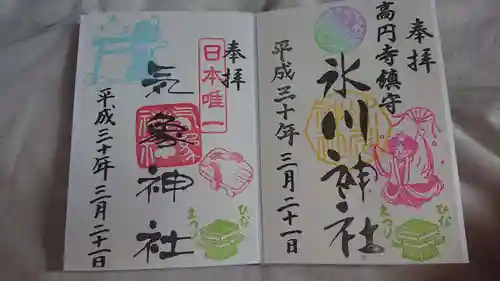 奉拝
高円寺鎮守
氷川神社
平成三十年三月二十一日
ひな
まつり
奉拝
日本唯一
気象神社
平成三十年三月二十一日
ひな
まつり